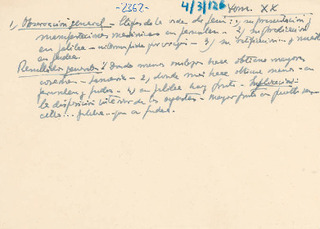 -2362-
4/3/126 Tom. XX
1) Observación general - Elipsis de la vida de Jesús: 1) su presentación y
manifestaciones mesiánicas en Jerusalén - 2) su predicación
en galilea - interrumpida por viajes - 3) su 
en Judea.
Resultados generales: 1) donde menos milagros hace obtiene mayor
cosecha - Samaria - 2) donde más hace obtiene menos - en
Jerusalén y Judea - 3) en galilea hay fruto - Explicación:
la disposición interior de los oyentes - mayor fruto en pueblo sen-
cillo... galilea - que en Judea.